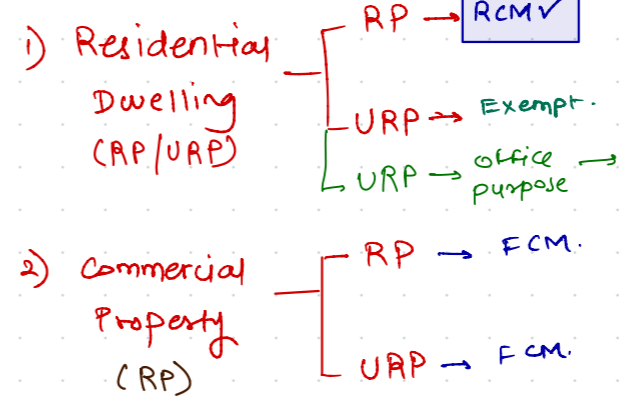 RP → RCM✓
1) Residential
Dwelling
(RP/URP)
URP → Exempt.
URP → office purpose →
2) Commercial
Property
(RP)
RP → FCM.
URP → FCM.